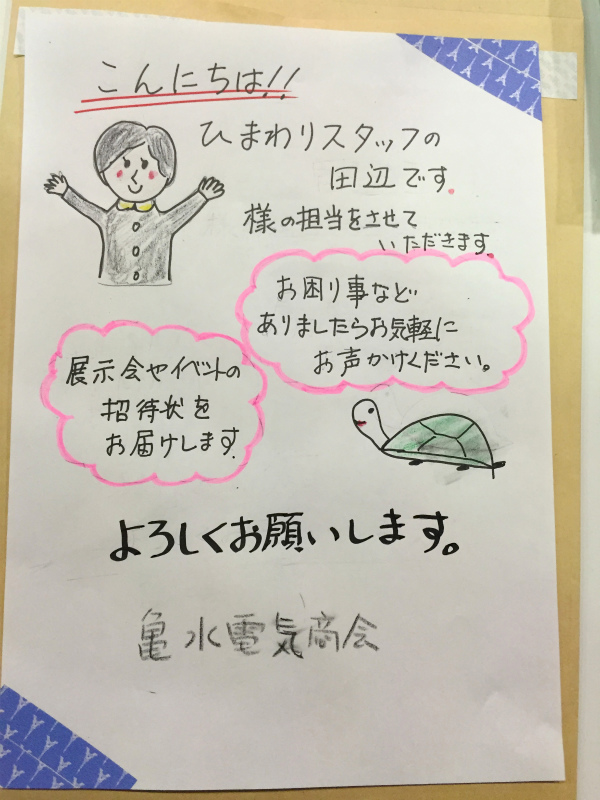 こんにちは!!
ひまわりスタッフの
田辺です.
様の担当をさせて
いただきます.
お困り事など
ありましたらお気軽に
お声かけください。
展示会やイベントの
招待状を
お届けします.
よろしくお願いします。
亀水電気商会